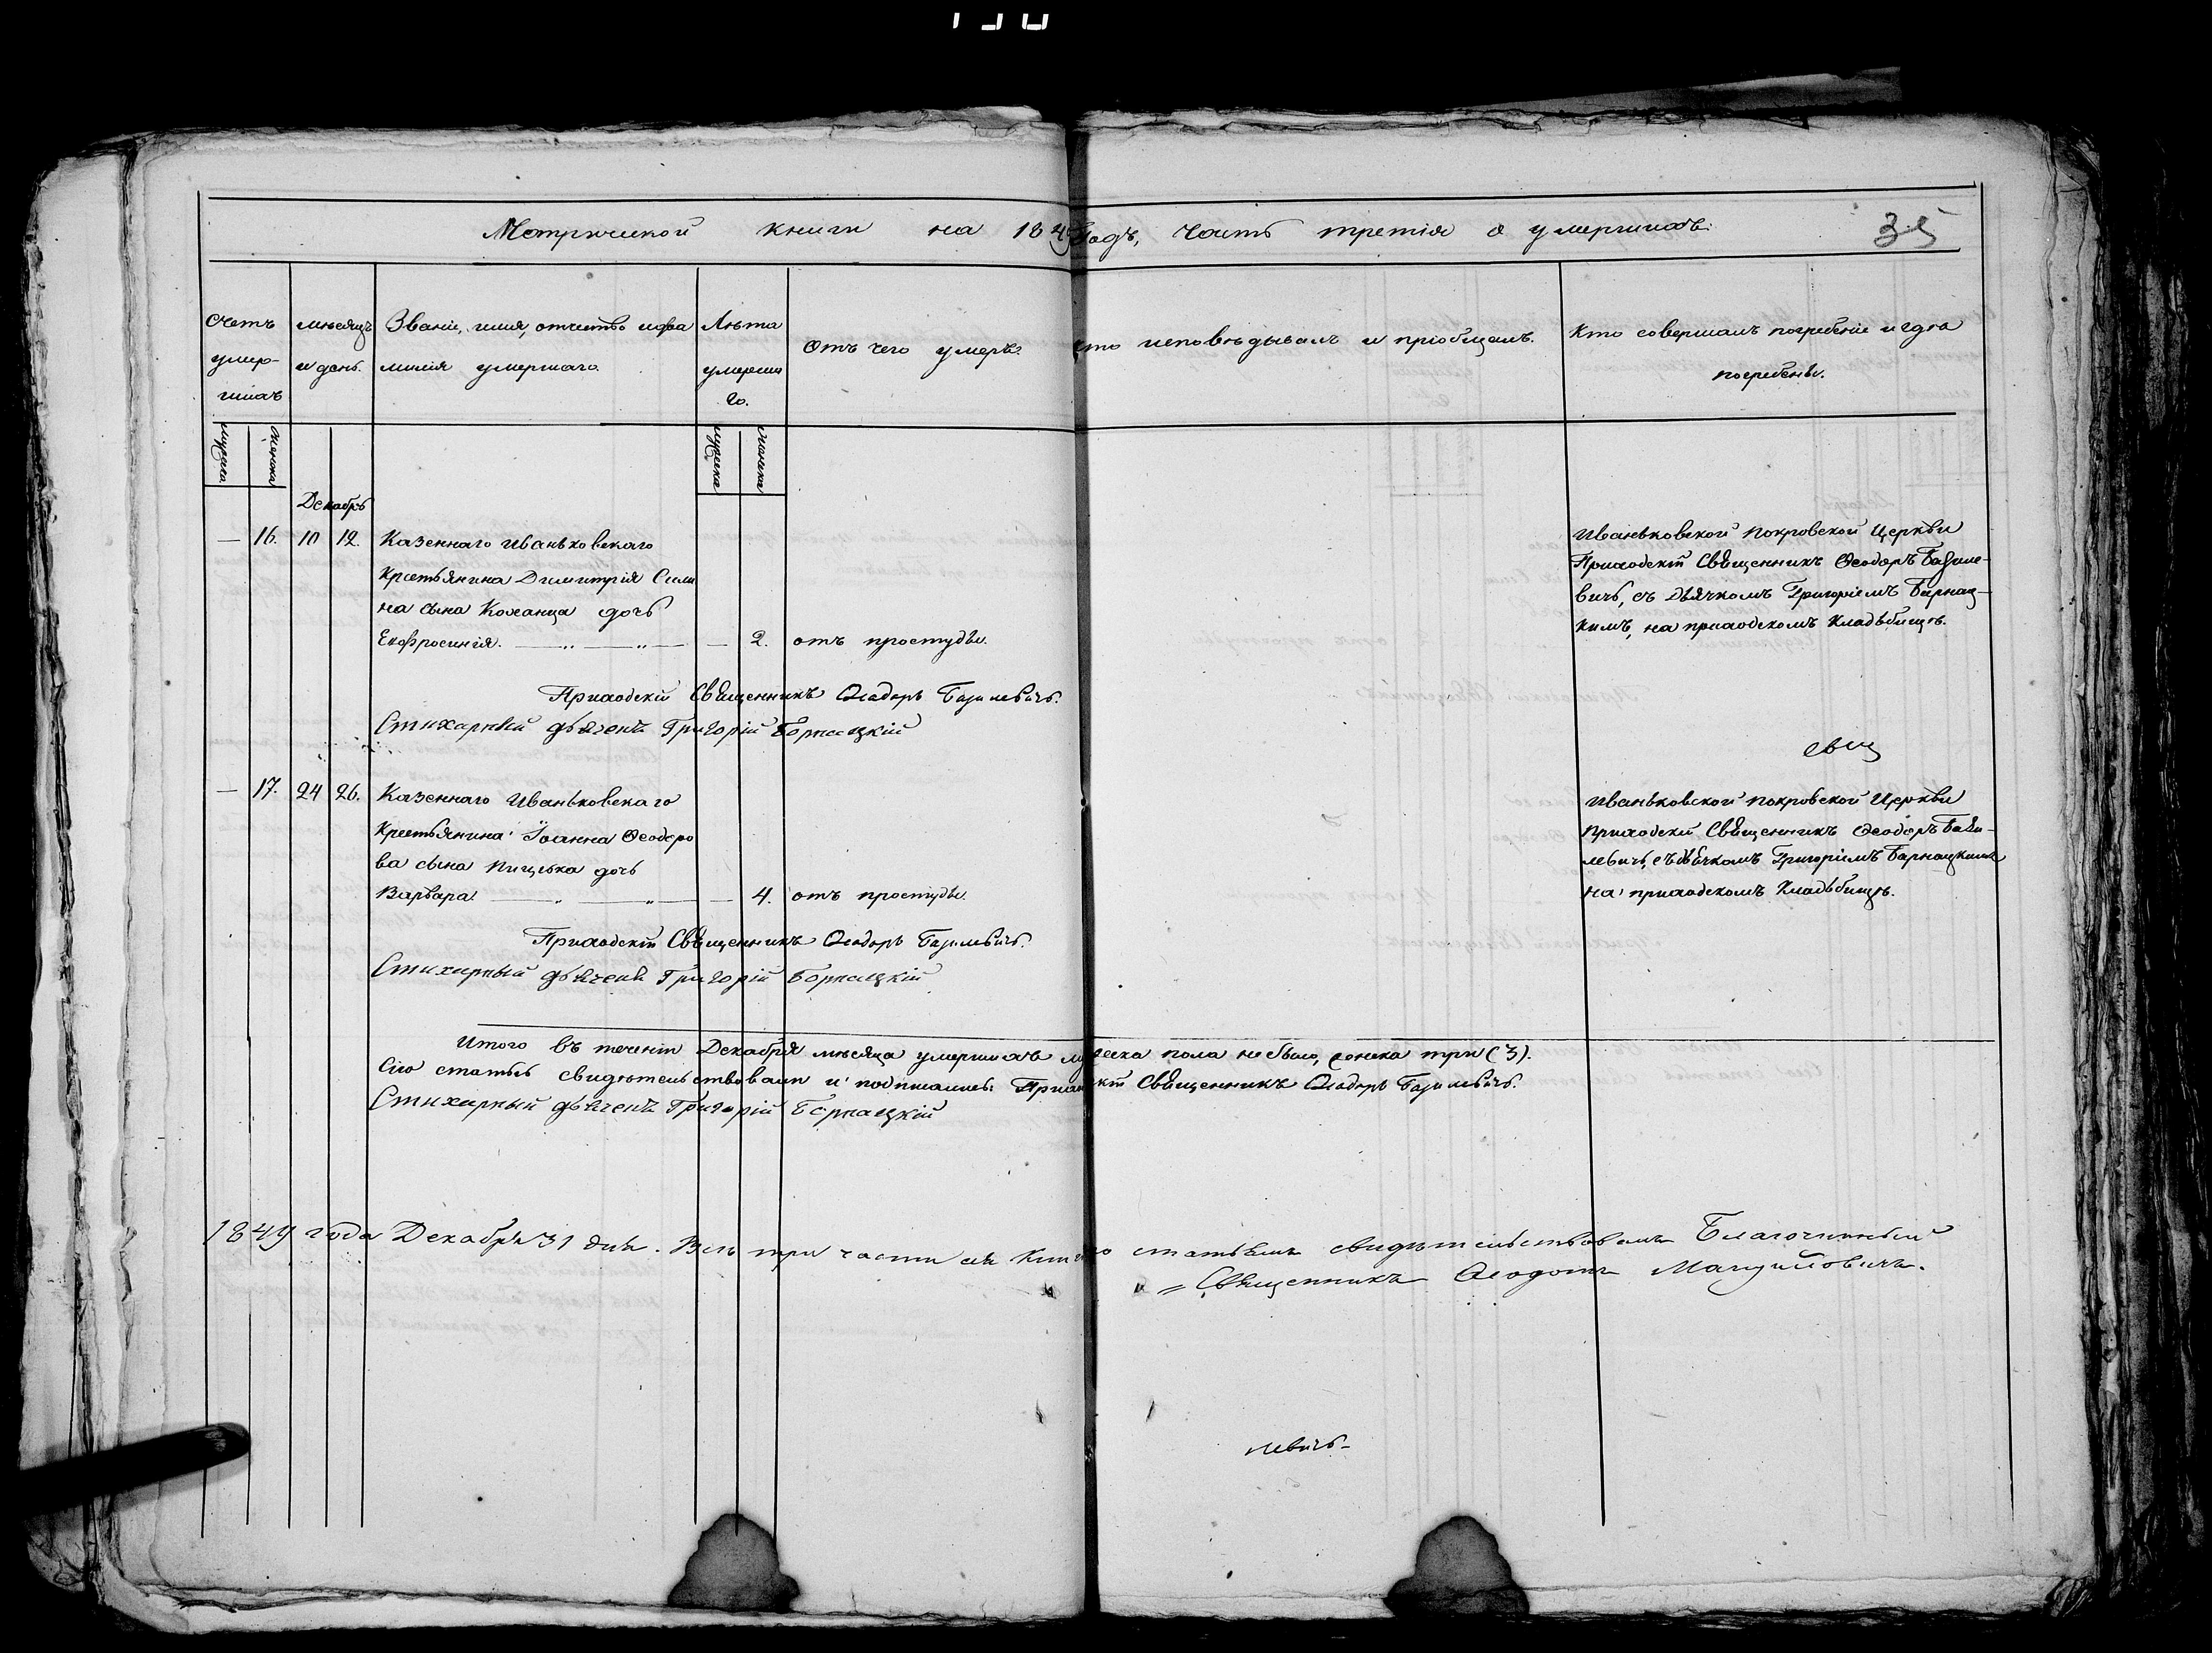 Метрической книги на 1849 Годъ, Часть третія о умершихъ.
35
Счетъ умер-шихъ
мѣсяцъ и день.
Званіе, имя, отчество и фамилія умершаго.
Лѣта умершаго.
Отъ чего умеръ.
Кто исповѣдывалъ и пріобщалъ.
Кто совершалъ погребеніе и гдѣ погребены.
мужеска
женска
мужеска
женска
Декабрь
— 16. 10 12. Казеннаго Иваньковскаго
Крестьянина Димитрія Сили
на сына Коханца дочь
Евфросинія. — „ — „ — — 2. отъ простуды.
Иваньковской Покровской Церкви
Приходскій Священникъ Ѳеодоръ Базиле-
вичъ, съ Дьячкомъ Григоріемъ Барнац-
кимъ, на приходскомъ Кладьбищѣ.
Приходскій Священникъ Ѳеодоръ Базилевичъ.
Стихарный дьячекъ Григорій Борнацкій
свщ
— 17. 24 26. Казеннаго Иваньковскаго
Крестьянина Іоанна Ѳеодоро
ва сына Пицька дочь
Варвара. — „ — „ — — 4. отъ простуды.
Иваньковской Покровской Церкви
Приходскій Священникъ Ѳеодоръ Бази-
левичъ, съ дьячкомъ Григоріемъ Барнацкимъ
на приходскомъ Кладьбищѣ.
Приходскій Священникъ Ѳеодоръ Базилевичъ.
Стихарный дьячекъ Григорій Борнацкій
Итого въ теченіи Декабря мѣсяца умершихъ мужеска пола не было, женска три (3).
Сію статью свидѣтельствовали и подписались: Приходскій Священникъ Ѳеодоръ Базилевичъ.
Стихарный дьячекъ Григорій Борнацкій
1849 года Декабря 31 дня. Всѣ три части сей Книги по статьямъ свидѣтельствовалъ Благочинный
Священникъ Ѳеодотъ
левичъ-